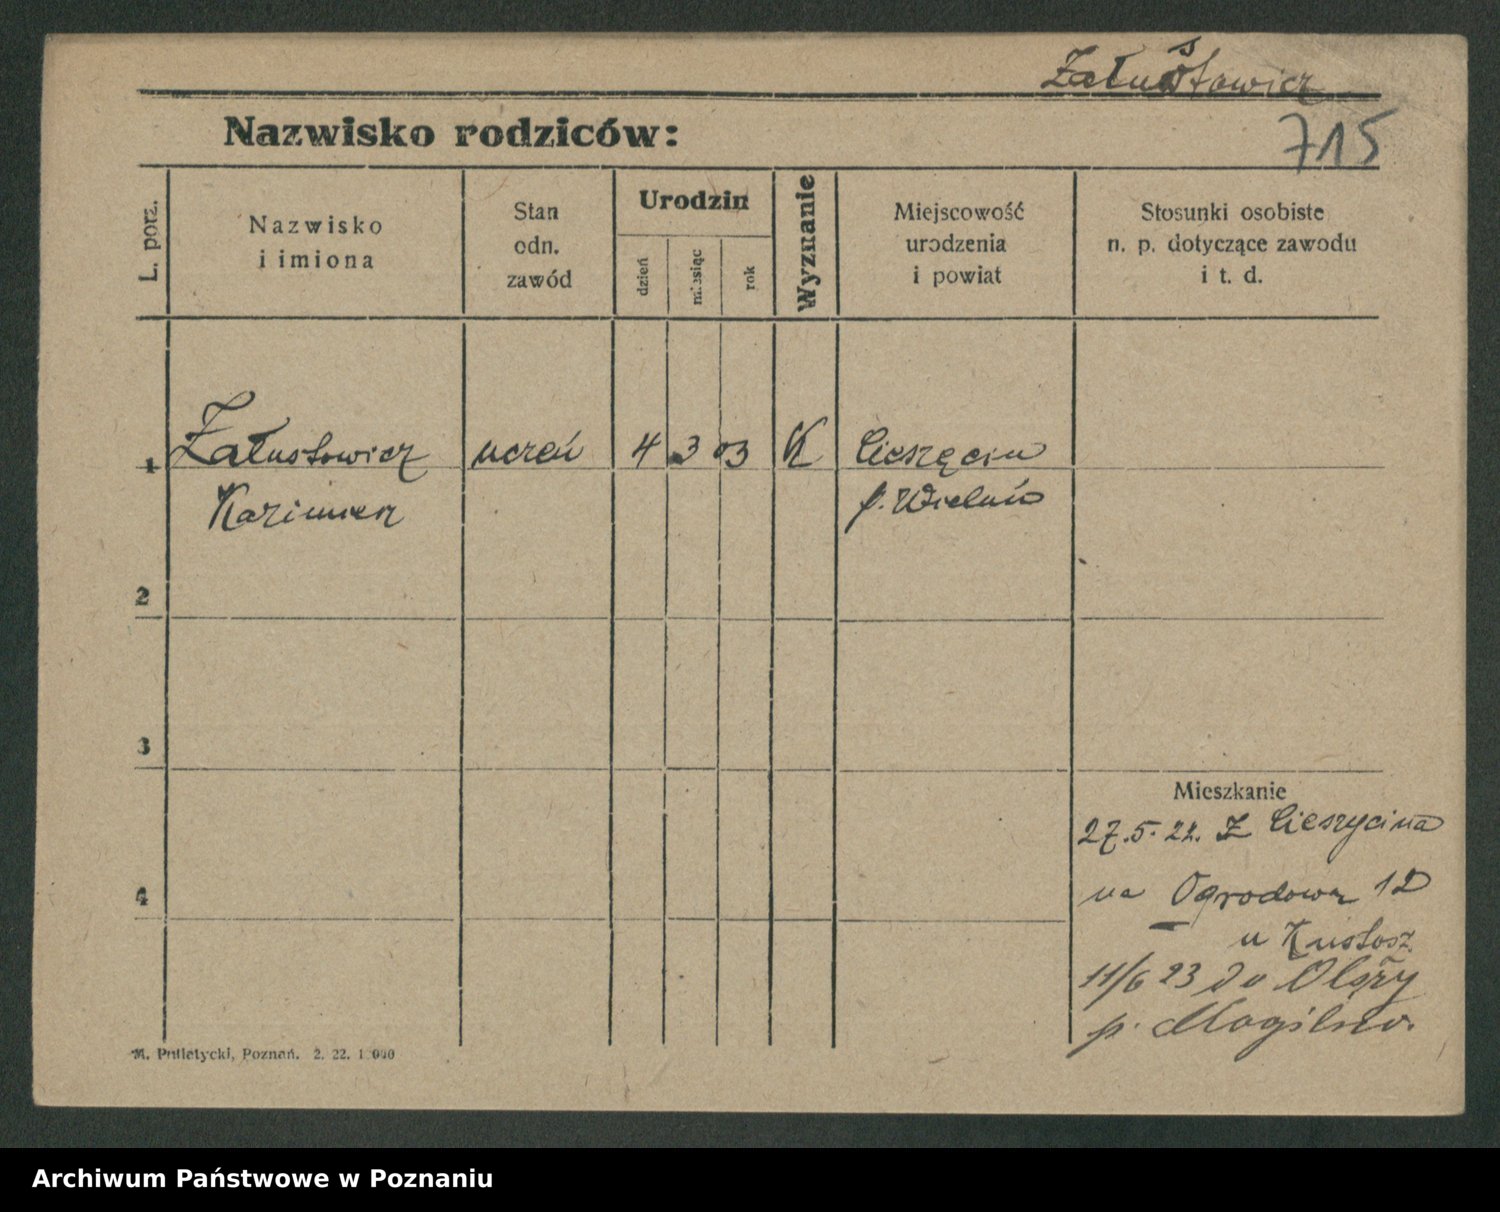 Załustowicz
715
Nazwisko rodziców:
L. porz.
Nazwisko
i imiona
Stan
odn.
zawód
Urodzin
dzień
miesiąc
rok
Wyznanie
Miejscowość
urodzenia
i powiat
Stosunki osobiste
n. p. dotyczące zawodu
i t. d.
1 Załustowicz uczeń 4 3 03 K Cieszęcin
Kazimierz p. Wieluń
2
3
4
Mieszkanie
27.5.22. Z Cieszycina
na Ogrodowa 12
u Kustosz.
11/6 23 do
p. Mogilno.
M. Putiatycki, Poznań. 2. 22. 1 000
Archiwum Państwowe w Poznaniu